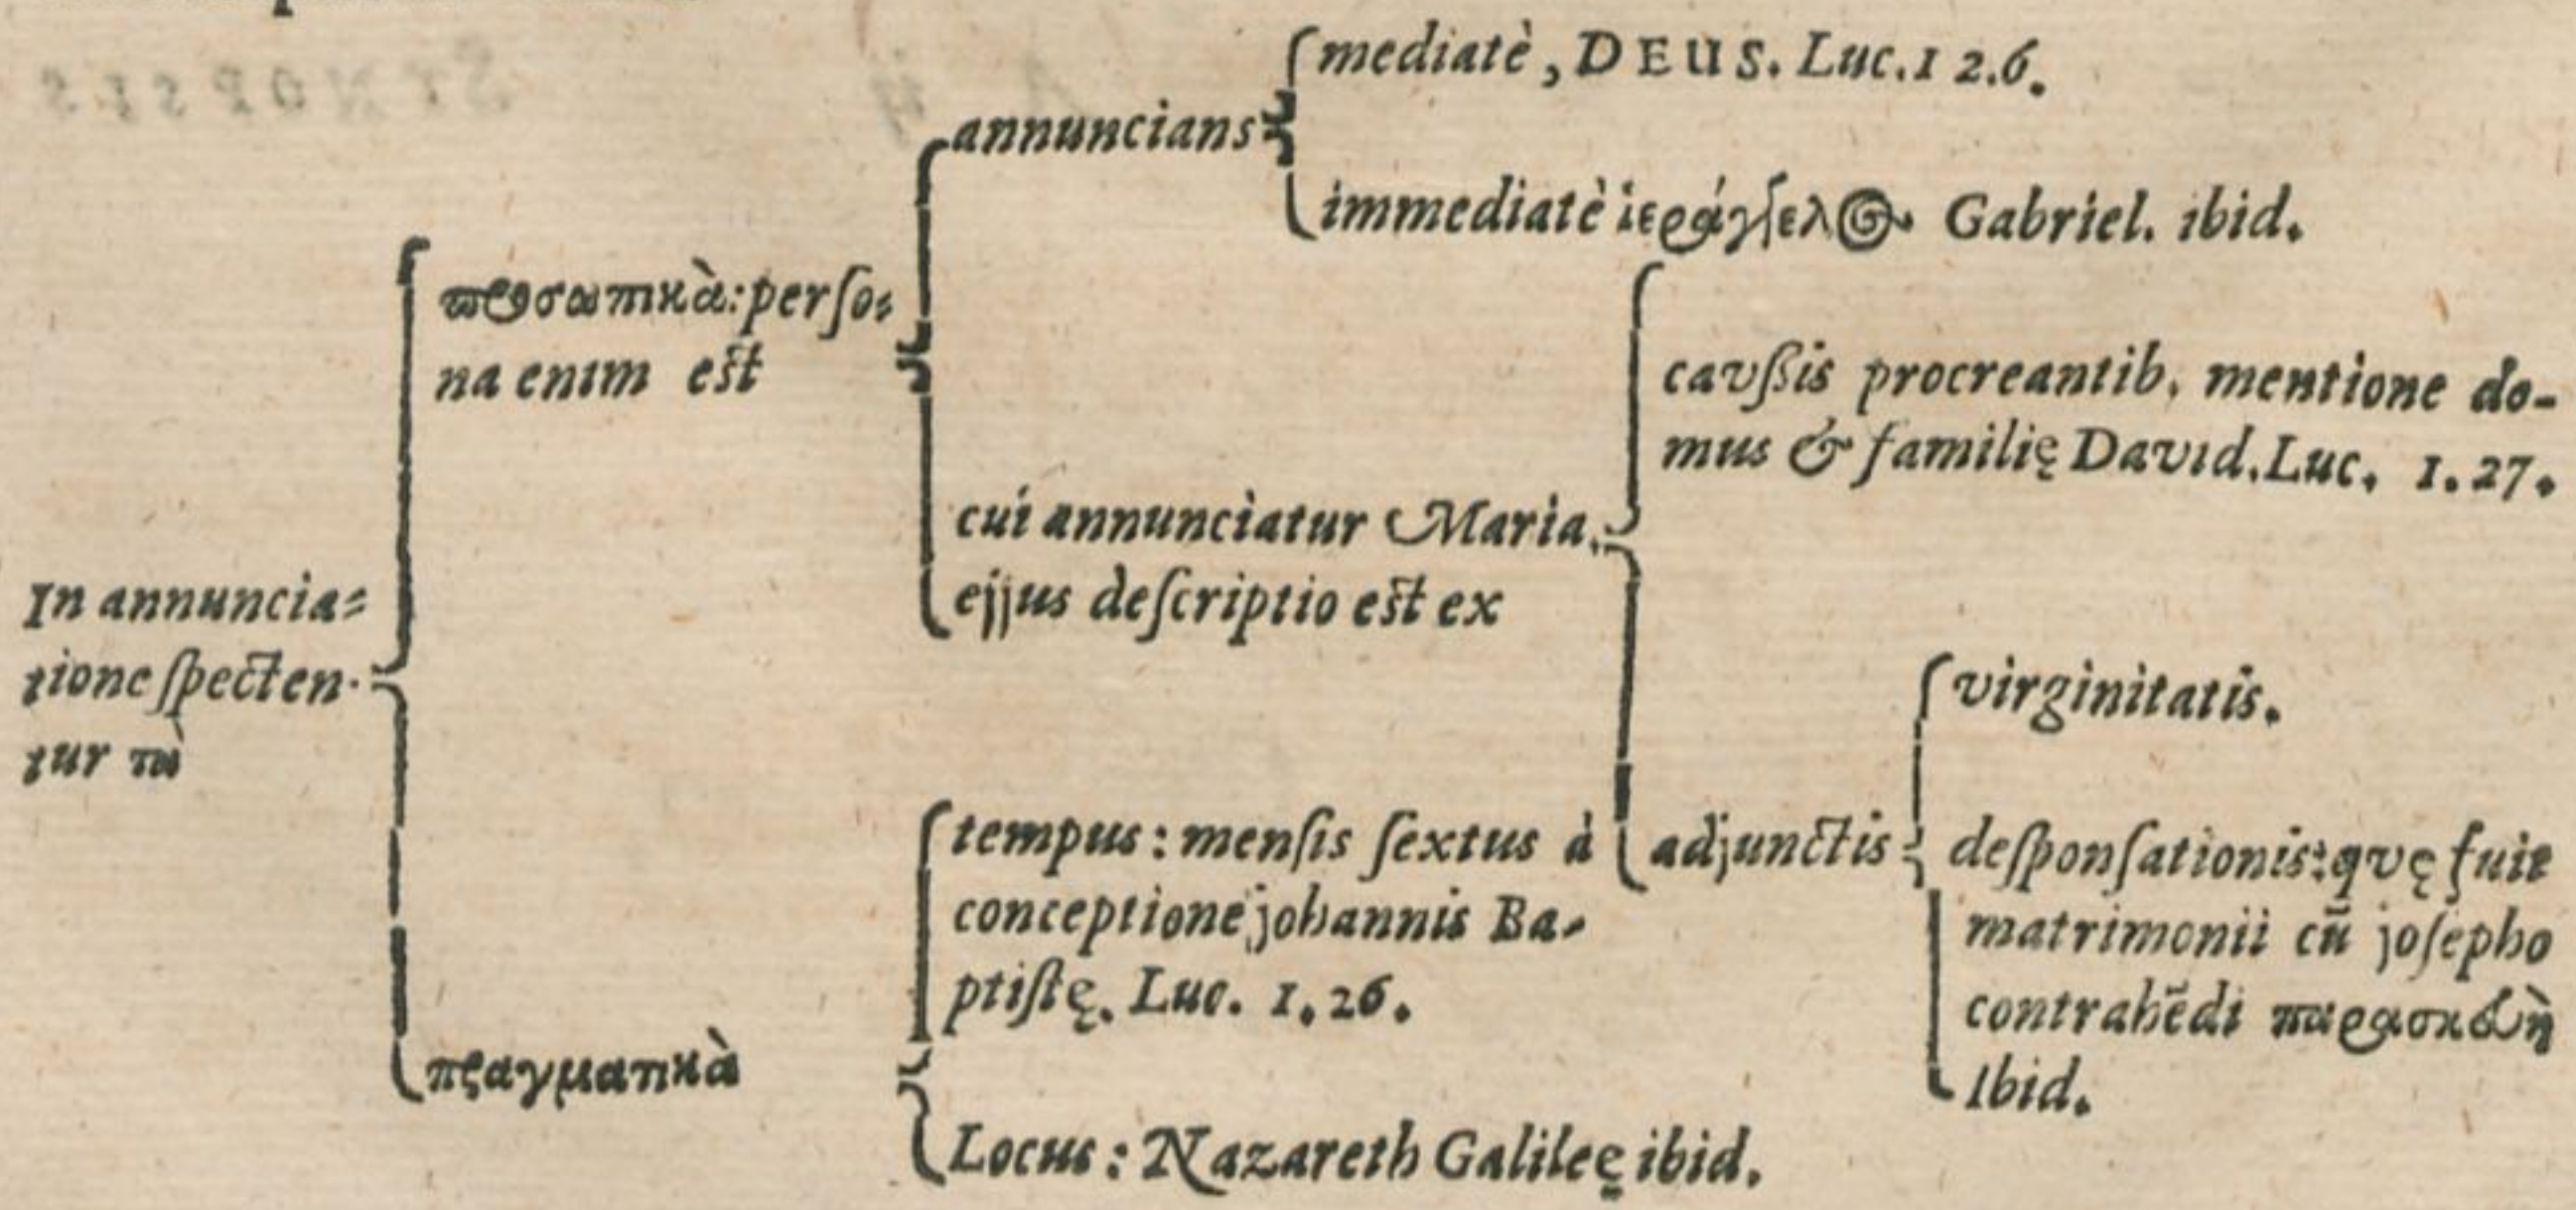 In annuncia⸗
tione ſpecten⸗
tur τὰ
προσωπικὰ: perſo⸗
na enim eſt
annuncians
mediatè, DEUS. Luc. 1 2.6.
immediatè ἱεράγγελος Gabriel. ibid.
cui annunciatur Maria,
ejjus deſcriptio eſt ex
cavſsis procreantib. mentione do-
mus & familię David. Luc. 1. 27.
adjunctis
virginitatis.
deſponſationis: qvę fuit
matrimonii cū joſepho
contrahēdi παρασκευὴ
Ibid.
πραγματικὰ
tempus: menſis ſextus à
conceptione johannis Ba⸗
ptiſtę. Luc. 1. 26.
Locus: Nazareth Galileę ibid.